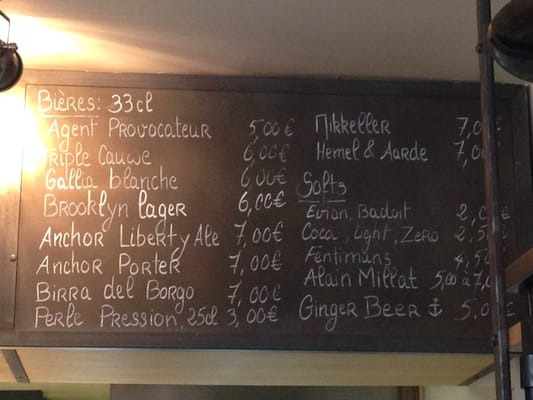 Bières: 33cl
Agent Provocateur 5,00€
Triple Cauwe 6,00€
Gallia blanche 6,00€
Brooklyn Lager 6,00€
Anchor Liberty Ale 7,00€
Anchor Porter 7,00€
Birra del Borgo 7,00€
Perle Pression, 25cl 3,00€
Mikkeller 7,0
Hemel & Aarde 7,0
Softs
Evian, Badoit 2,
Coca, Light, Zero 2,5
Fentimans 4,5
Alain Millat 5,00 à 7,0
Ginger Beer 5,0